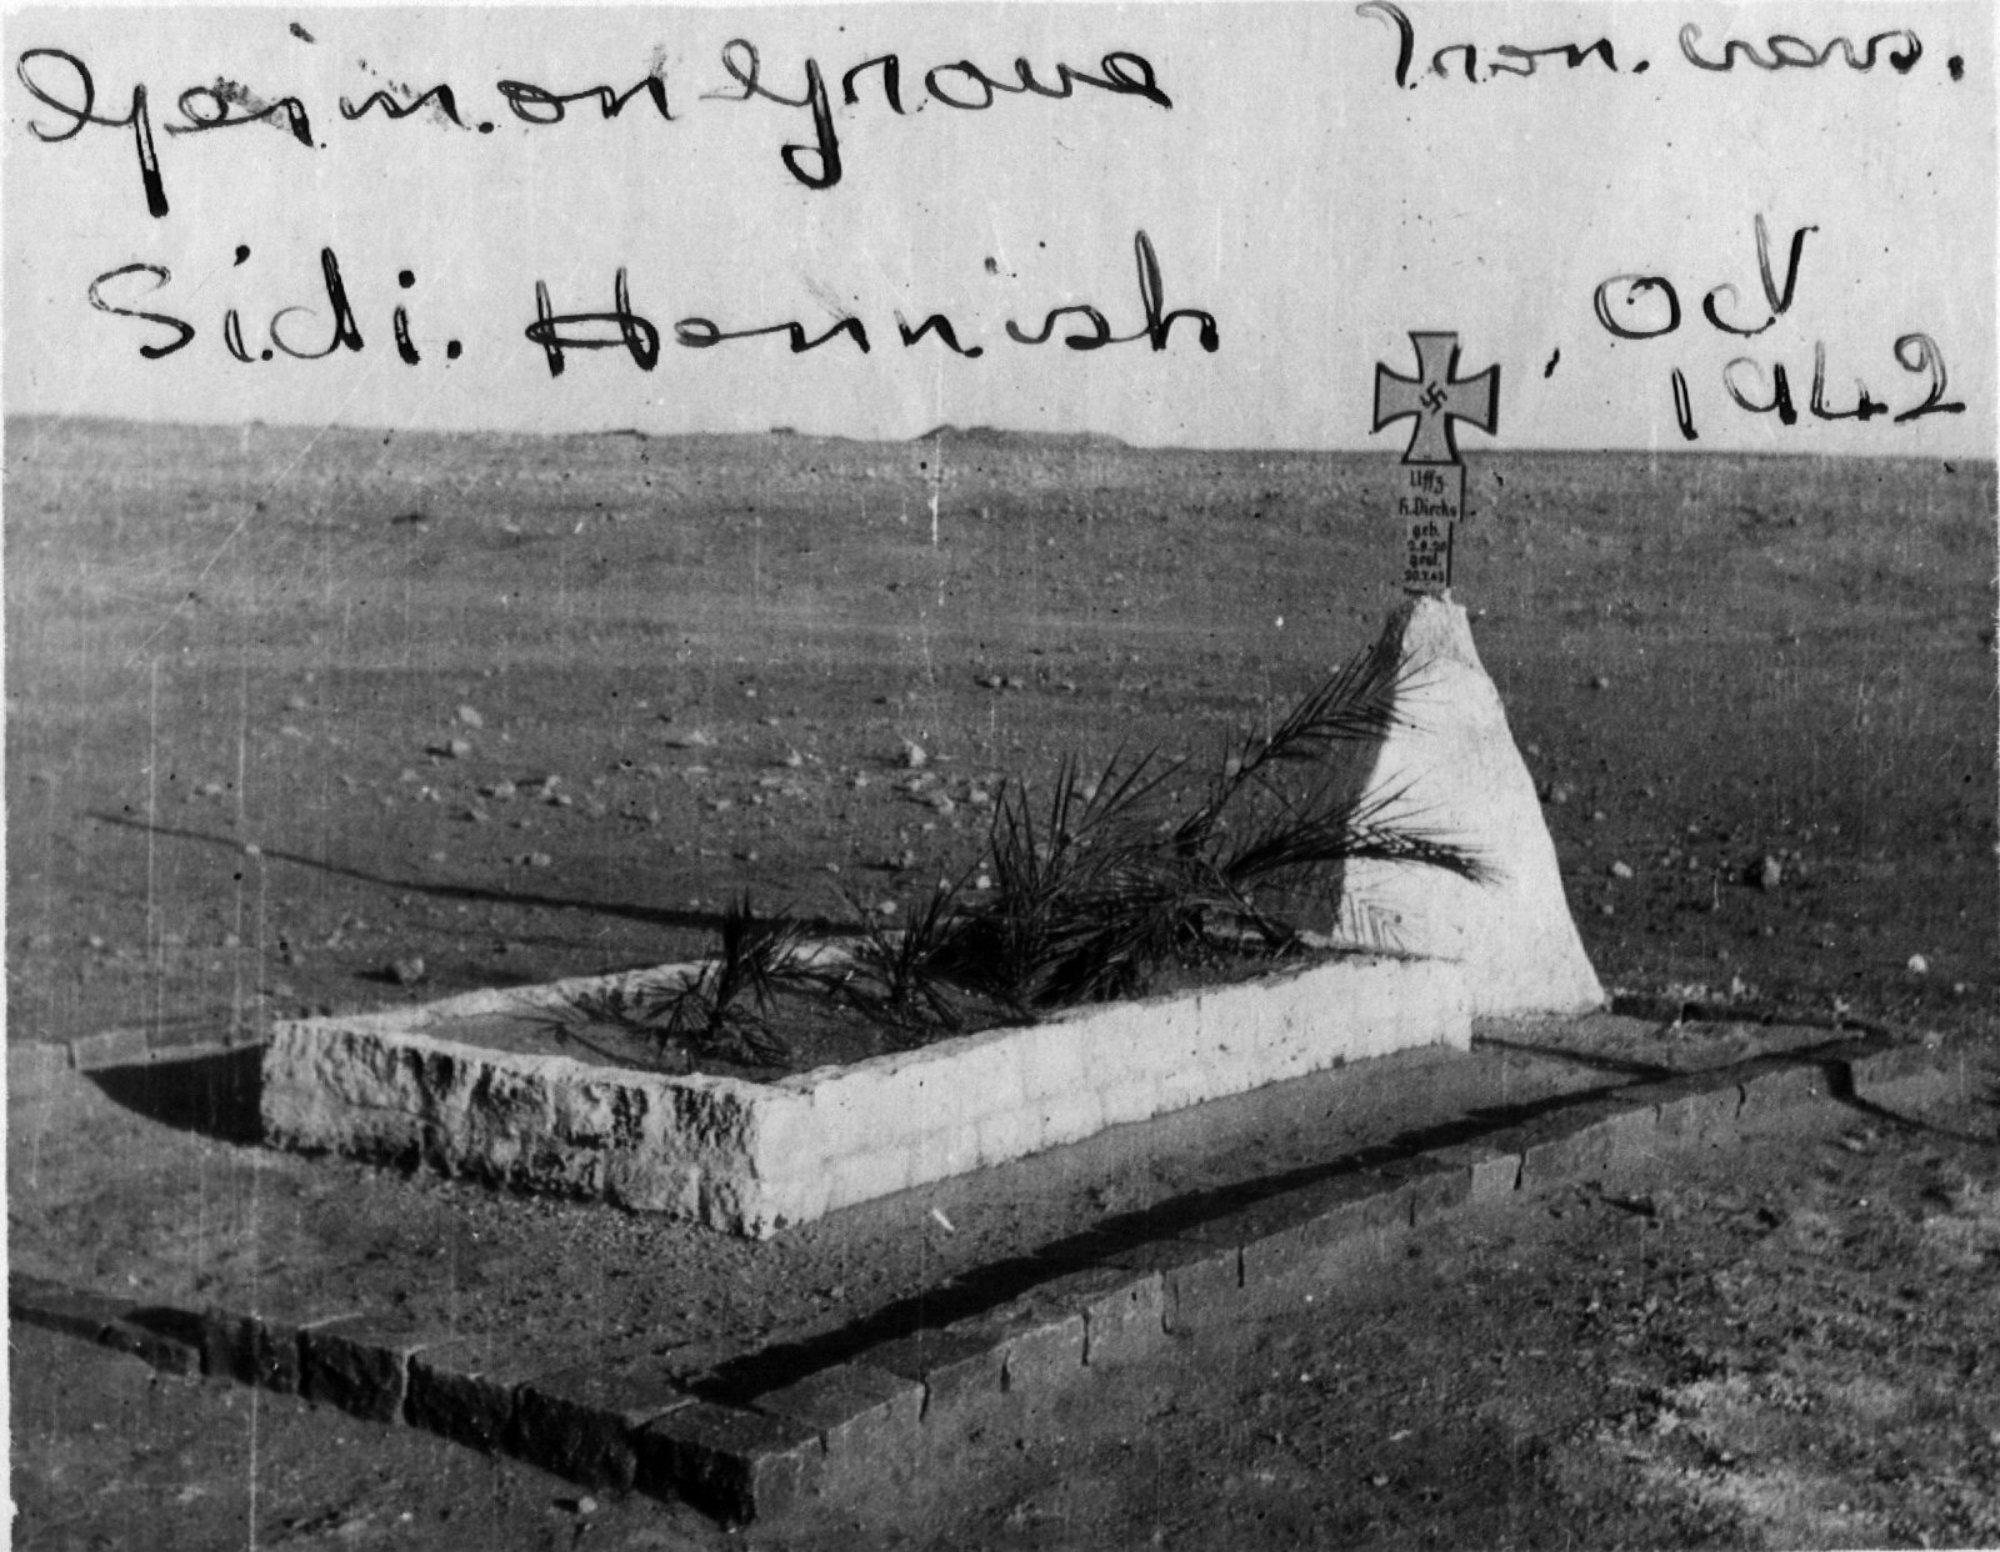 German Grave Iron. cross.
Sidi. Hennish , Oct
1942
Uffz
H. Dircks
geb.
2.9.20
gest.